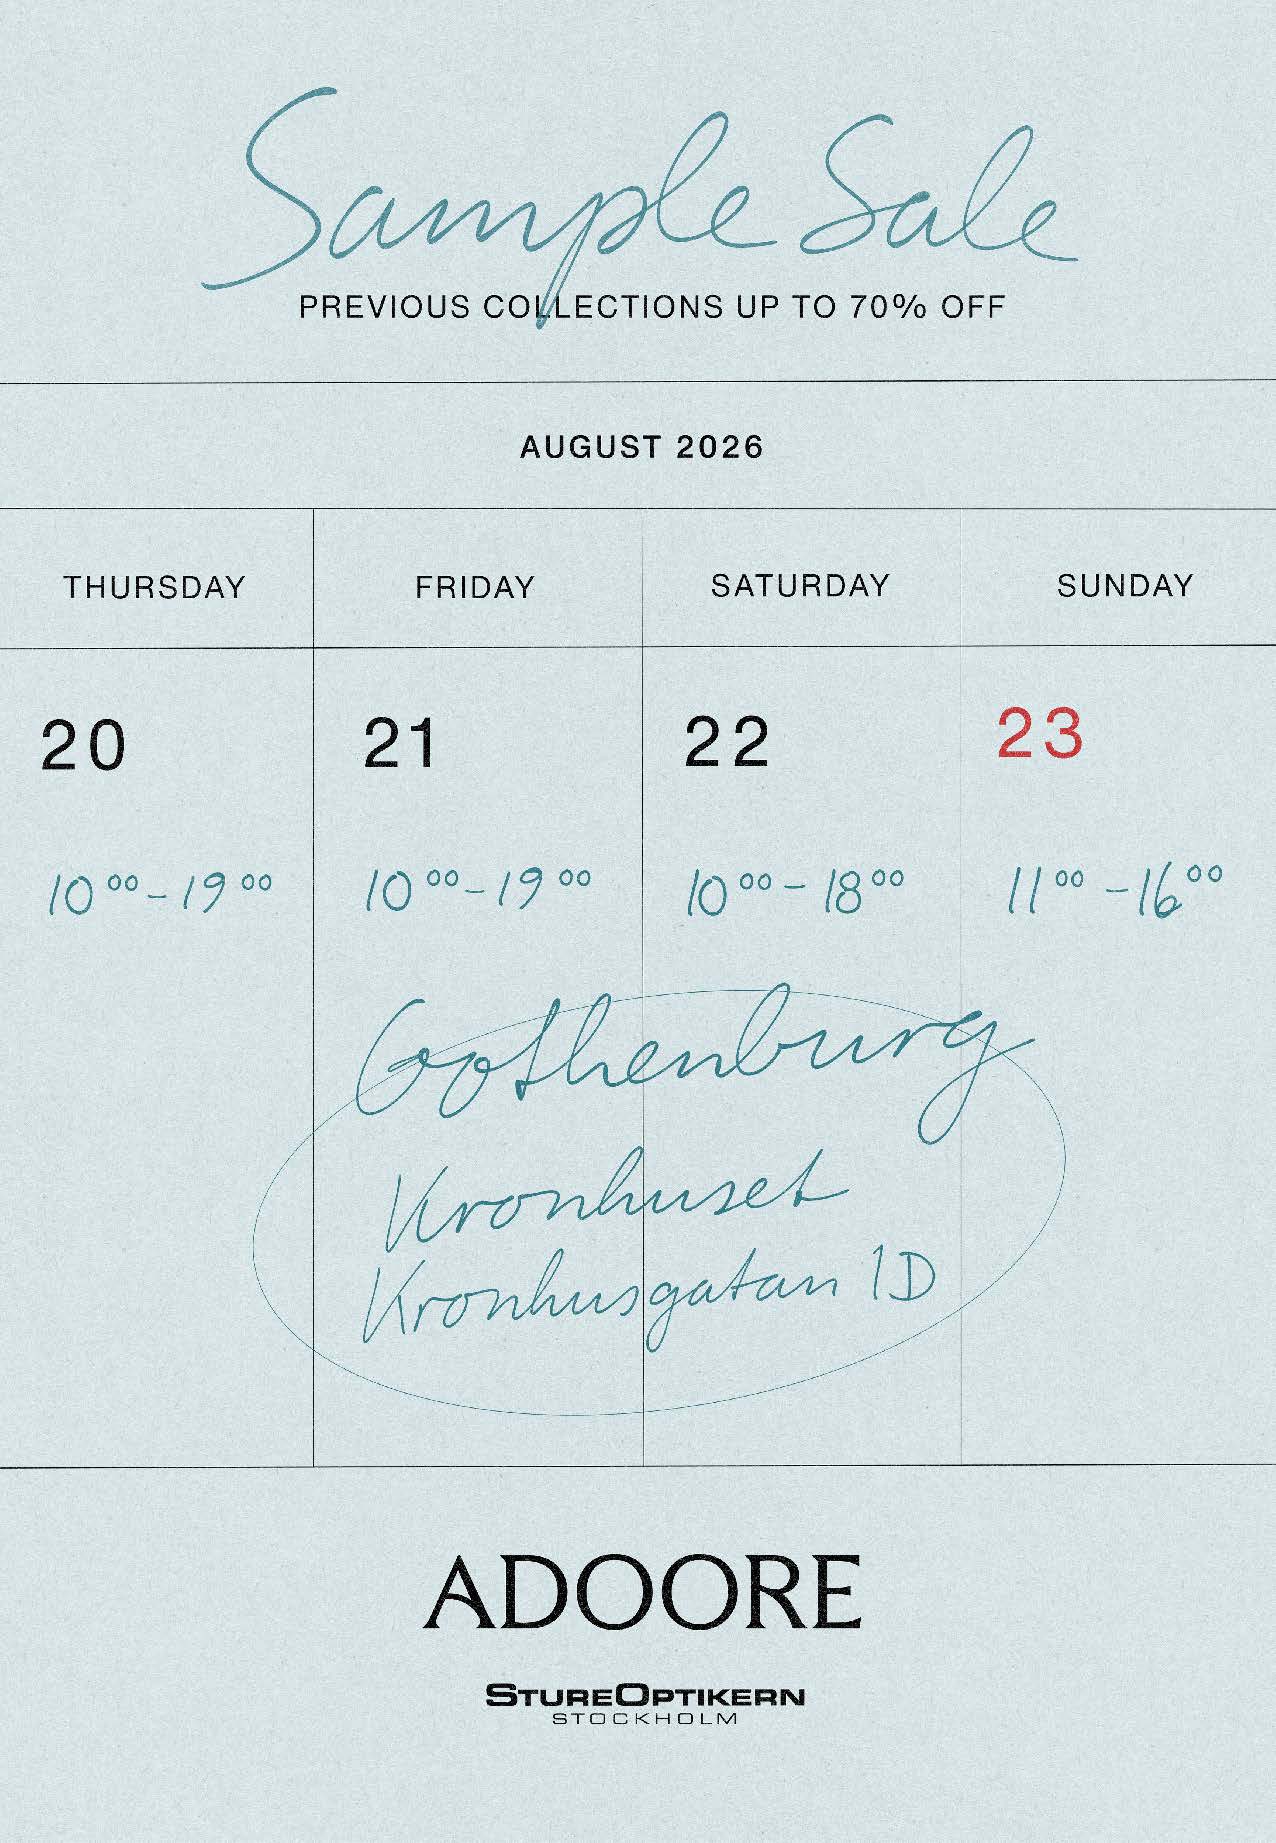 Sample Sale
PREVIOUS COLLECTIONS UP TO 70% OFF
AUGUST 2026
THURSDAY FRIDAY SATURDAY SUNDAY
20 21 22 23
10⁰⁰-19⁰⁰ 10⁰⁰-19⁰⁰ 10⁰⁰-18⁰⁰ 11⁰⁰-16⁰⁰
Gothenburg
Kronhuset
Kronhusgatan 1D
ADOORE
STUREOPTIKERN
STOCKHOLM